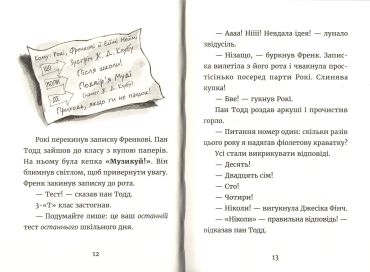 Кому: Рокі, Френкові й Еймі Немі
Що: Зустріч Х. Д. Клубу
Коли: Після школи!
Де: Подвір'я Муді
(намет Х. Д. Клубу)
Приходь, якщо ти не панда!
Рокі перекинув записку Френкові. Пан
Тодд зайшов до класу з купою паперів.
На ньому була кепка «Музикуй!». Він
блимнув світлом, щоб привернути увагу.
Френк закинув записку до рота.
— Тест! — сказав пан Тодд.
3-«Т» клас застогнав.
— Подумайте лише: це ваш останній
тест останнього шкільного дня.
12
— Ааа! Нііі! Невдала ідея! — лунало
звідусіль.
— Нізащо, — буркнув Френк. Запис-
ка вилетіла з його рота і чвакнула прос-
тісінько посеред парти Рокі. Слинява
купка!
— Бве! — гукнув Рокі.
Пан Тодд роздав аркуші і прочистив
горло.
— Питання номер один: скільки разів
цього року я надягав фіолетову краватку?
Усі стали викрикувати відповіді.
— Десять!
— Двадцять сім!
— Сто!
— Чотири!
— Ніколи! — вигукнула Джесіка Фінч.
— «Ніколи» — правильна відповідь! —
відказав пан Тодд.
13